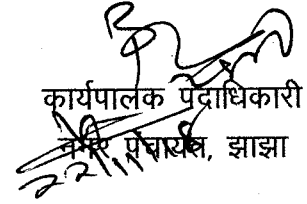 कार्यपालक पदाधिकारी
नगर पंचायत, झाझा